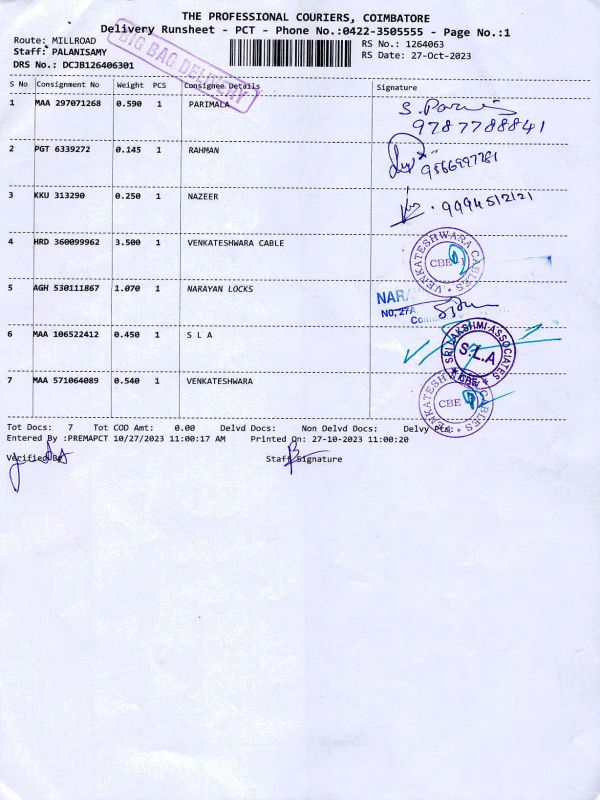 THE PROFESSIONAL COURIERS, COIMBATORE
Delivery Runsheet - PCT - Phone No.:0422-3505555 - Page No.:1
Route: MILLROAD
RS No.: 1264063
Staff: PALANISAMY
RS Date: 27-Oct-2023
DRS No.: DCJB126406301
BIG BAG DELIVERY
S No Consignment No Weight PCS Consignee Details Signature
1 MAA 297071268 0.590 1 PARIMALA
9787788841
2 PGT 6339272 0.145 1 RAHMAN
9566997281
3 KKU 313290 0.250 1 NAZEER
9994512121
4 HRD 360099962 3.500 1 VENKATESHWARA CABLE
VENKATESHWARA CABLES
CBE
5 AGH 530111867 1.070 1 NARAYAN LOCKS
NARA
NO, 27A
6 MAA 106522412 0.450 1 S L A
SRI LAKSHMI ASSOCIATES
S.L.A
CBE
7 MAA 571064089 0.540 1 VENKATESHWARA
VENKATESHWARA CABLES
CBE
Tot Docs: 7 Tot COD Amt: 0.00 Delvd Docs: Non Delvd Docs: Delvy Pct:
Entered By :PREMAPCT 10/27/2023 11:00:17 AM Printed On: 27-10-2023 11:00:20
Verified By Staff Signature